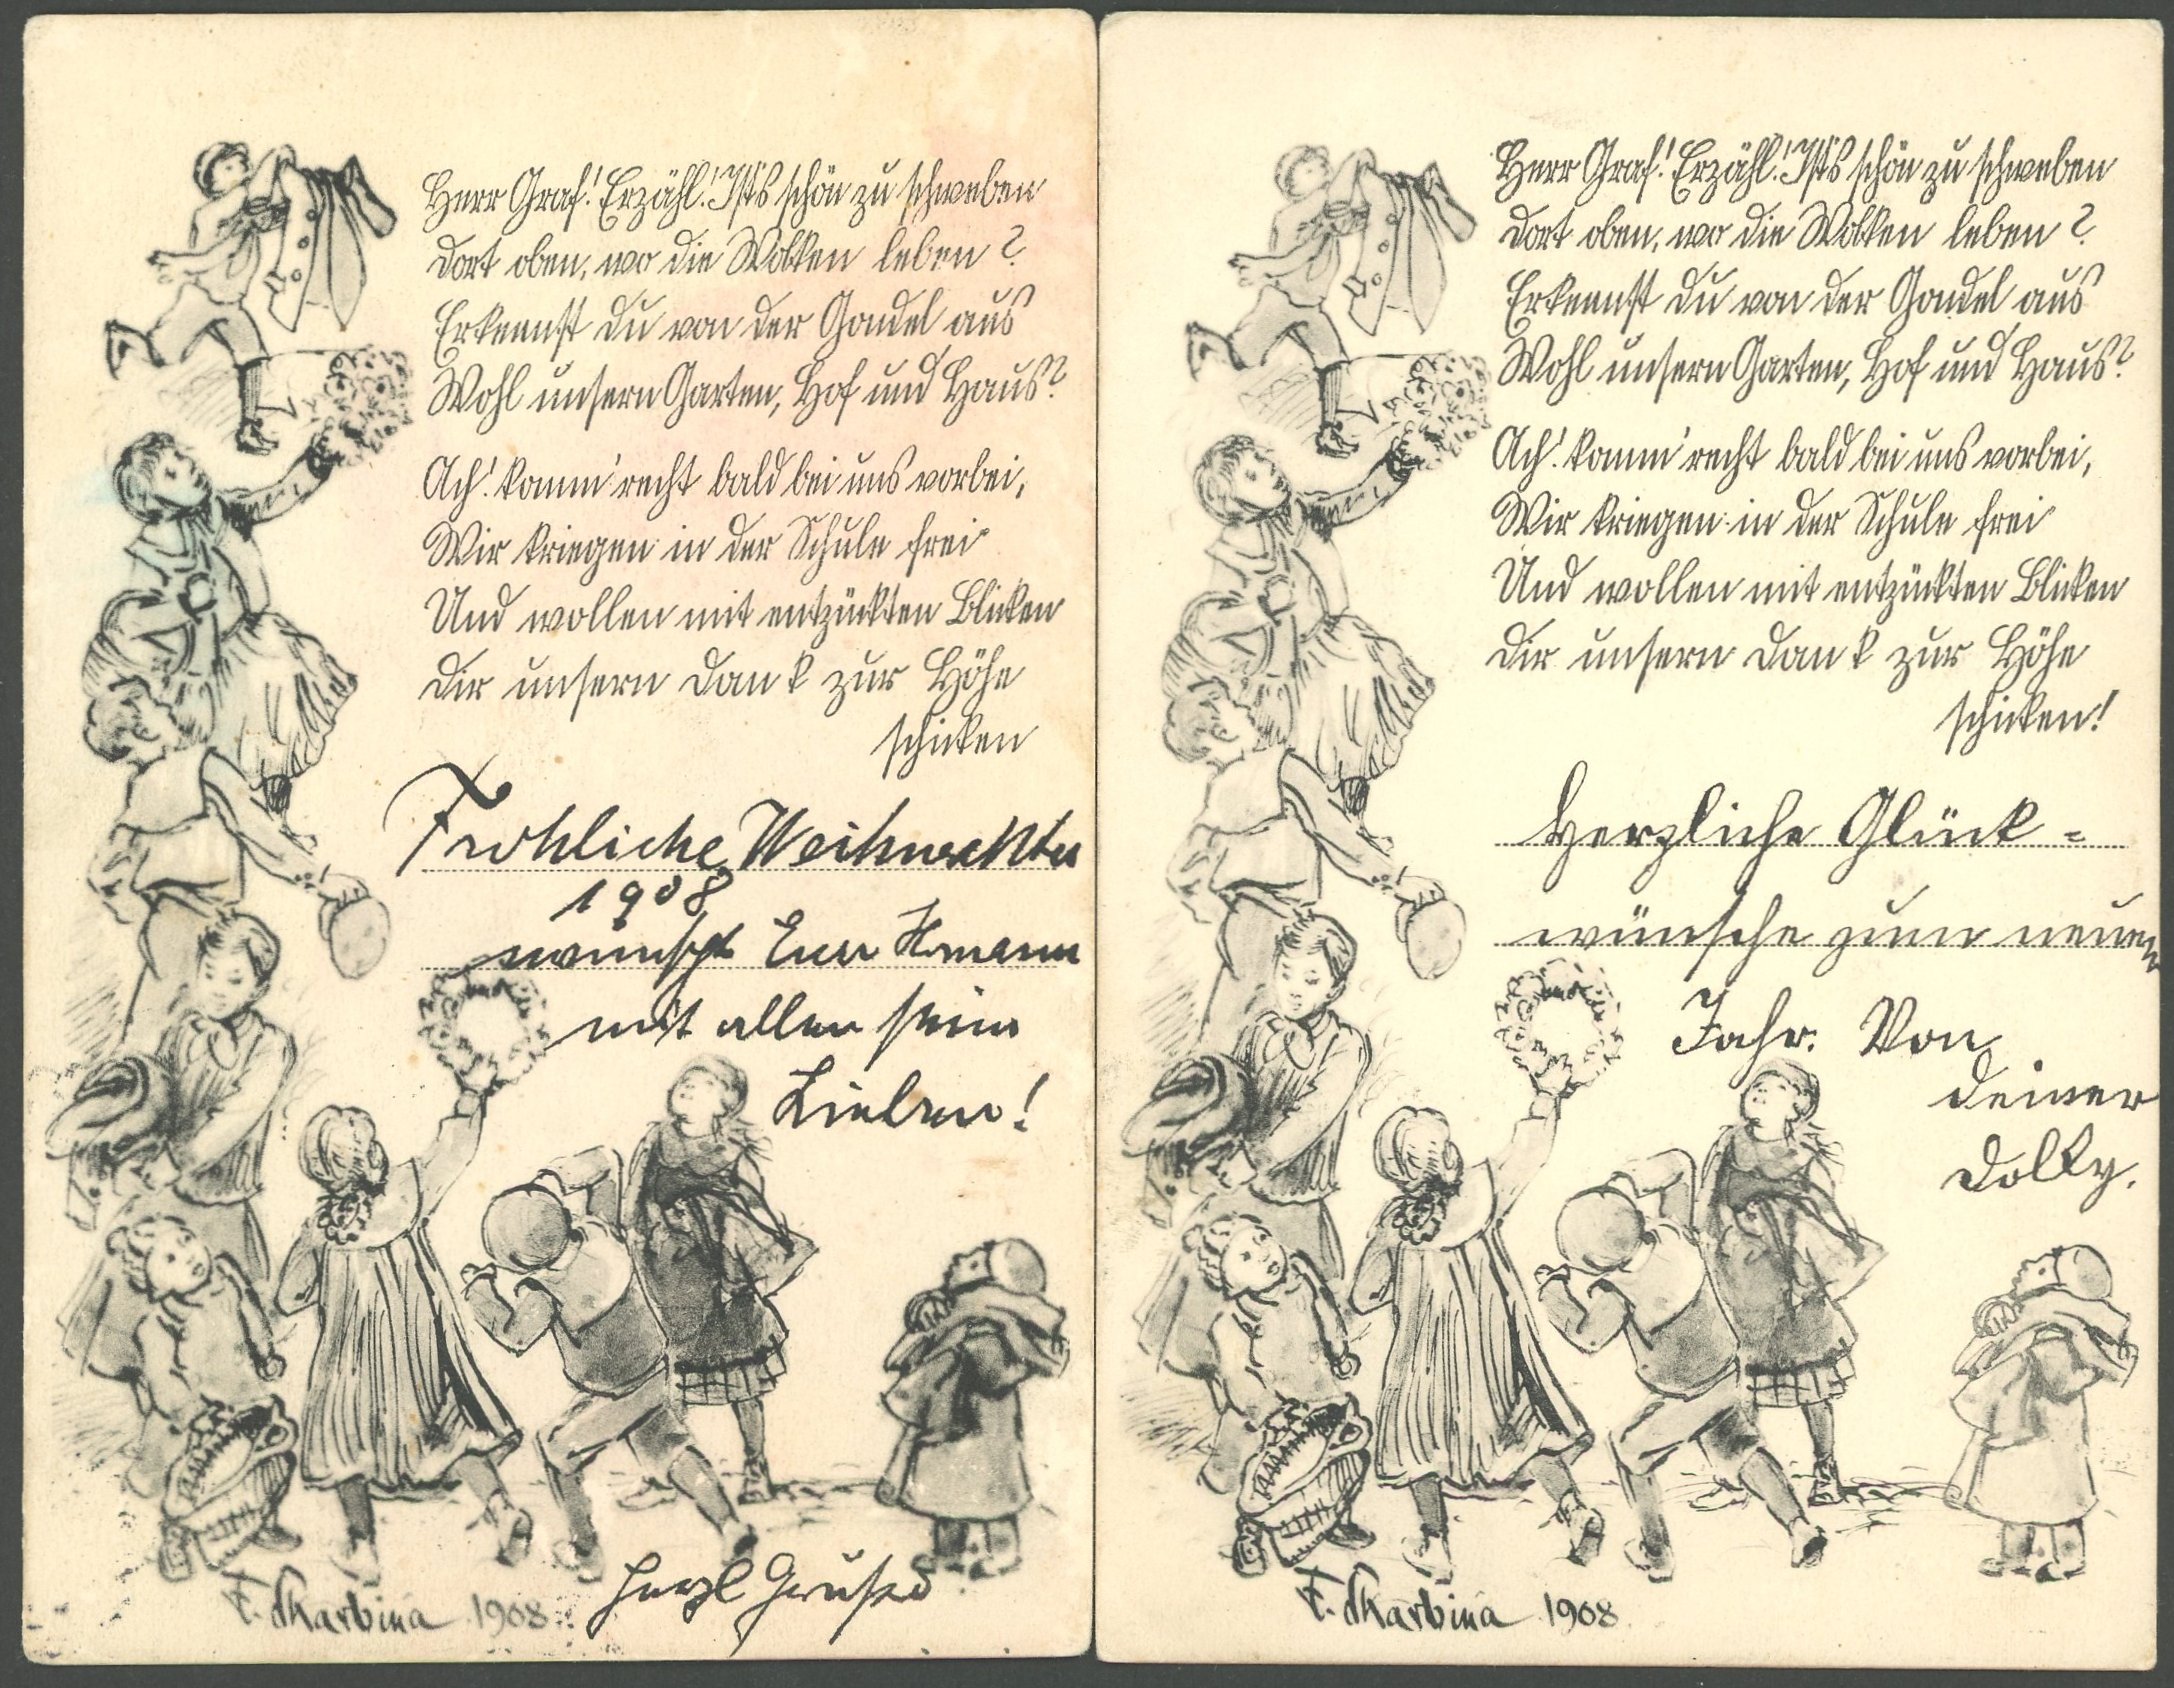 Herr Graf! Erzähl! Ist's schön zu schweben
dort oben, wo die Wolken leben?
Erkennst du von der Gondel aus
Wohl unsern Garten, Hof und Haus?
Ach! komm' recht bald bei uns vorbei,
Wir kriegen in der Schule frei
Und wollen mit entzückten Blicken
dir unsern Dank zur Höhe
schicken
Fröhliche Weihnachten
1908
wünscht Euer
mit allen seinen
Lieben!
Herzl Grüße
F. Skarbina 1908
Herr Graf! Erzähl! Ist's schön zu schweben
dort oben, wo die Wolken leben?
Erkennst du von der Gondel aus
Wohl unsern Garten, Hof und Haus?
Ach! komm' recht bald bei uns vorbei,
Wir kriegen in der Schule frei
Und wollen mit entzückten Blicken
dir unsern Dank zur Höhe
schicken!
Herzliche Glück=
wünsche zum neuen
Jahr. Von
deiner
Dolly.
F. Skarbina 1908